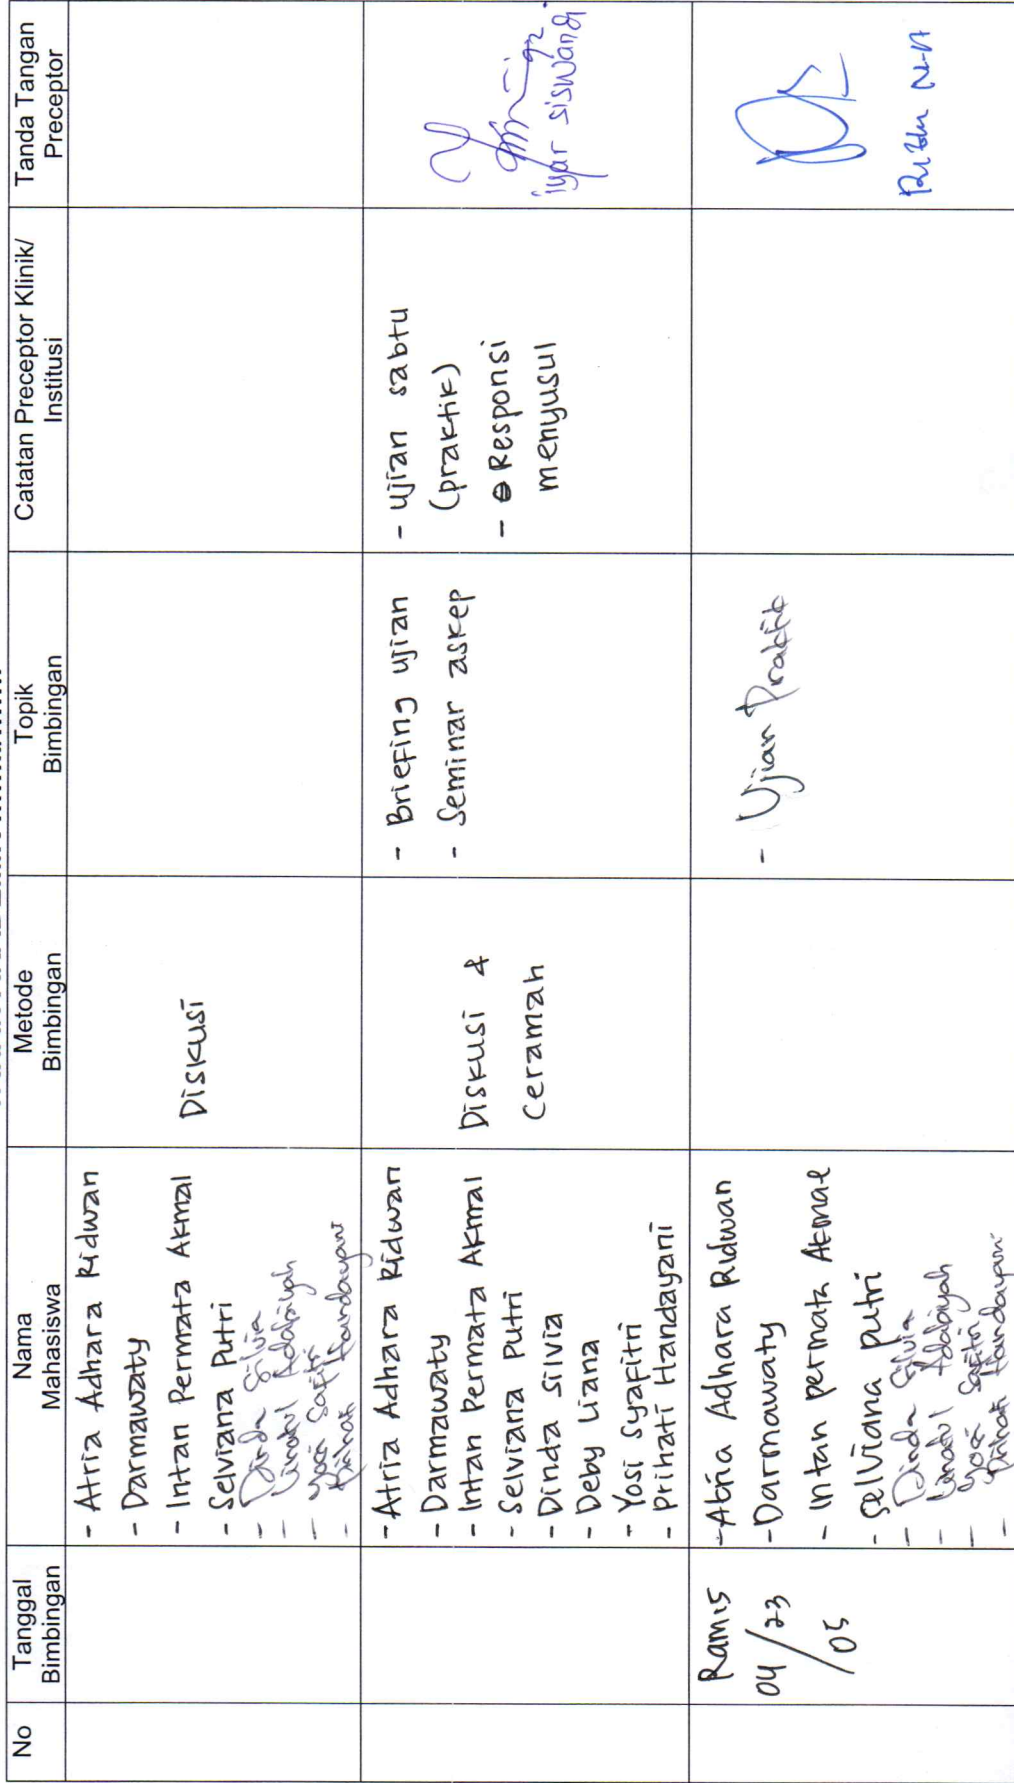 No
Tanggal
Bimbingan
Nama
Mahasiswa
Metode
Bimbingan
Topik
Bimbingan
Catatan Preceptor Klinik/
Institusi
Tanda Tangan
Preceptor
- Atria Adhara Ridwan
- Darmawaty
- Intan Permata Akmal
- Selviana Putri
- Dinda Silvia
- Adabiyah
- Yosi Safitri
- Prihati Handayani
Diskusi
- Atria Adhara Ridwan
- Darmawaty
- Intan Permata Akmal
- Selviana Putri
- Dinda Silvia
- Deby Liana
- Yosi Syafitri
- Prihati Handayani
Diskusi &
Ceramah
- Briefing ujian
- Seminar askep
- Ujian sabtu
(praktik)
- Responsi
menyusul
iyar siswandi
Kamis
04/23
/05
- Atria Adhara Ridwan
- Darmawaty
- Intan Permata Akmal
- Selviana Putri
- Dinda Silvia
- Adabiyah
- Yosi Safitri
- Prihati Handayani
- Ujian Praktik